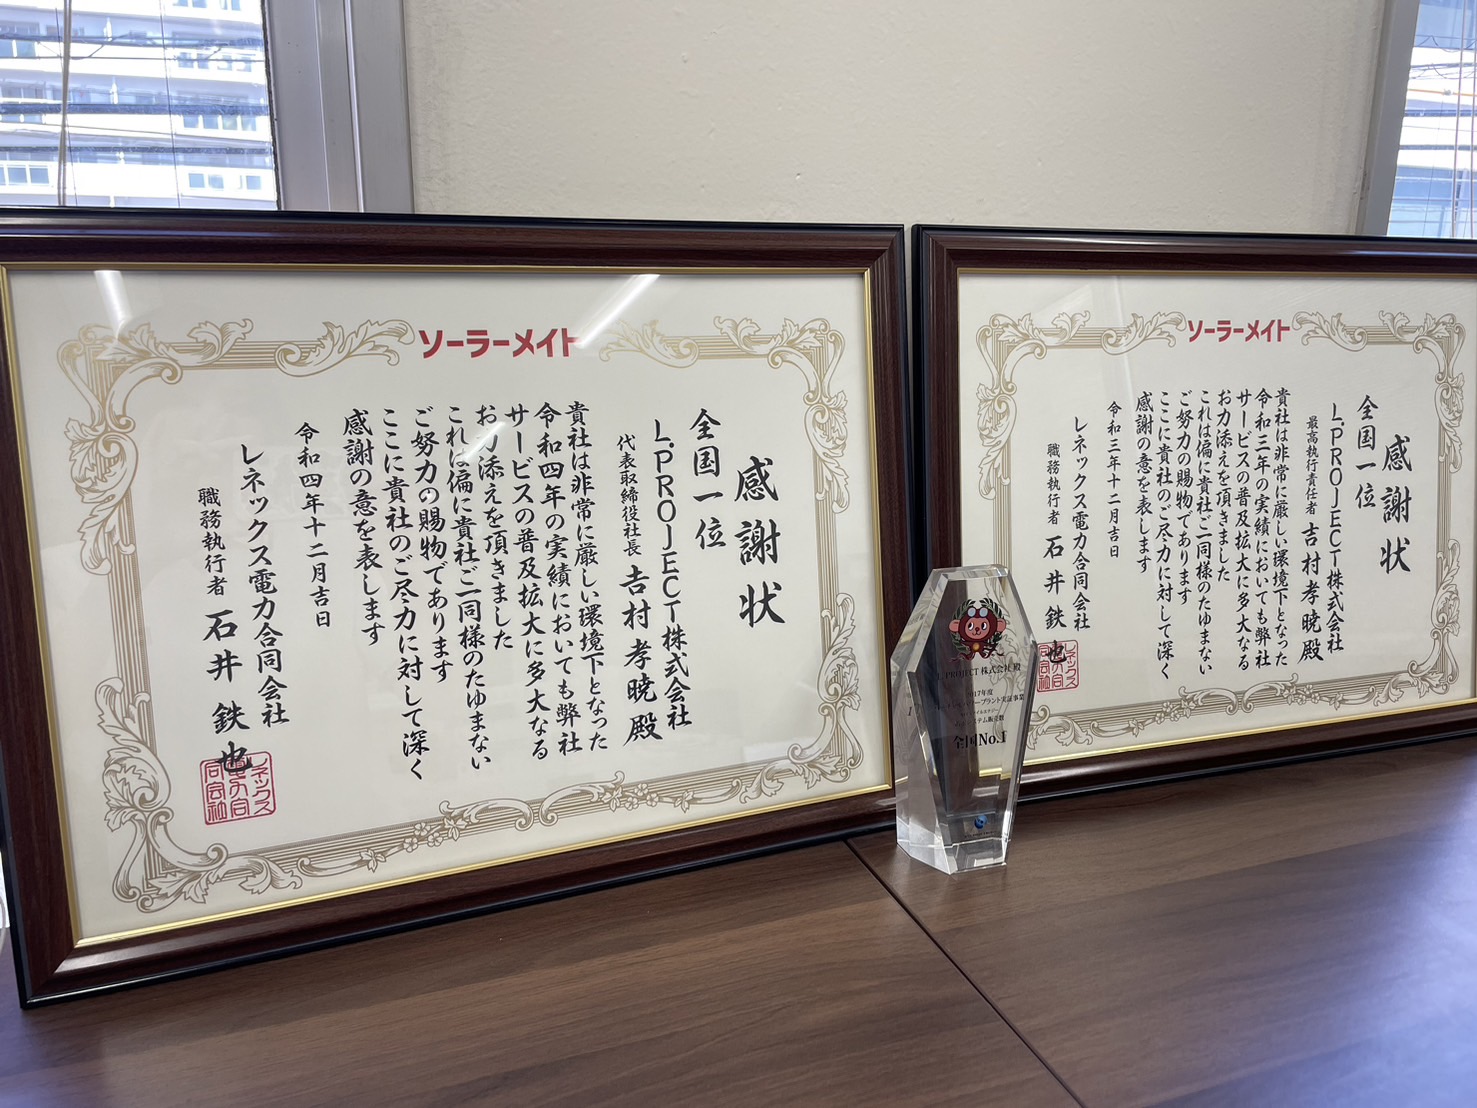 ソーラーメイト
感謝状
全国一位
L.PROJECT株式会社
代表取締役社長 吉村孝暁殿
貴社は非常に厳しい環境下となった
令和四年の実績においても弊社
サービスの普及拡大に多大なる
お力添えを頂きました
これは偏に貴社ご一同様のたゆまない
ご努力の賜物であります
ここに貴社のご尽力に対して深く
感謝の意を表します
令和四年十二月吉日
レネックス電力合同会社
職務執行者 石井鉄也
レネックス
電力合同会社
ソーラーメイト
感謝状
全国一位
L.PROJECT株式会社
最高執行責任者 吉村孝暁殿
貴社は非常に厳しい環境下となった
令和三年の実績においても弊社
サービスの普及拡大に多大なる
お力添えを頂きました
これは偏に貴社ご一同様のたゆまない
ご努力の賜物であります
ここに貴社のご尽力に対して深く
感謝の意を表します
令和三年十二月吉日
レネックス電力合同会社
職務執行者 石井鉄也
レネックス
電力合同会社
PROJECT 株式会社 殿
2017年度
プラント実証事業
システム販売数
全国No.1